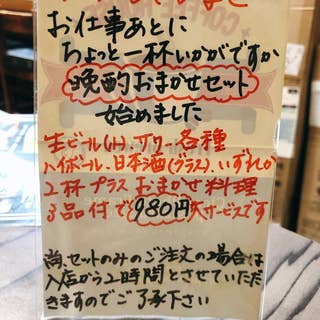 お仕事あとに
ちょっと一杯いかがですか
晩酌おまかせセット
始めました
生ビール(小)、サワー各種
ハイボール、日本酒(グラス)、いずれか
2杯プラスおまかせ料理
3品付で980円大サービスです
尚、セットのみのご注文の場合は
入店から2時間とさせていただ
きますのでご了承下さい